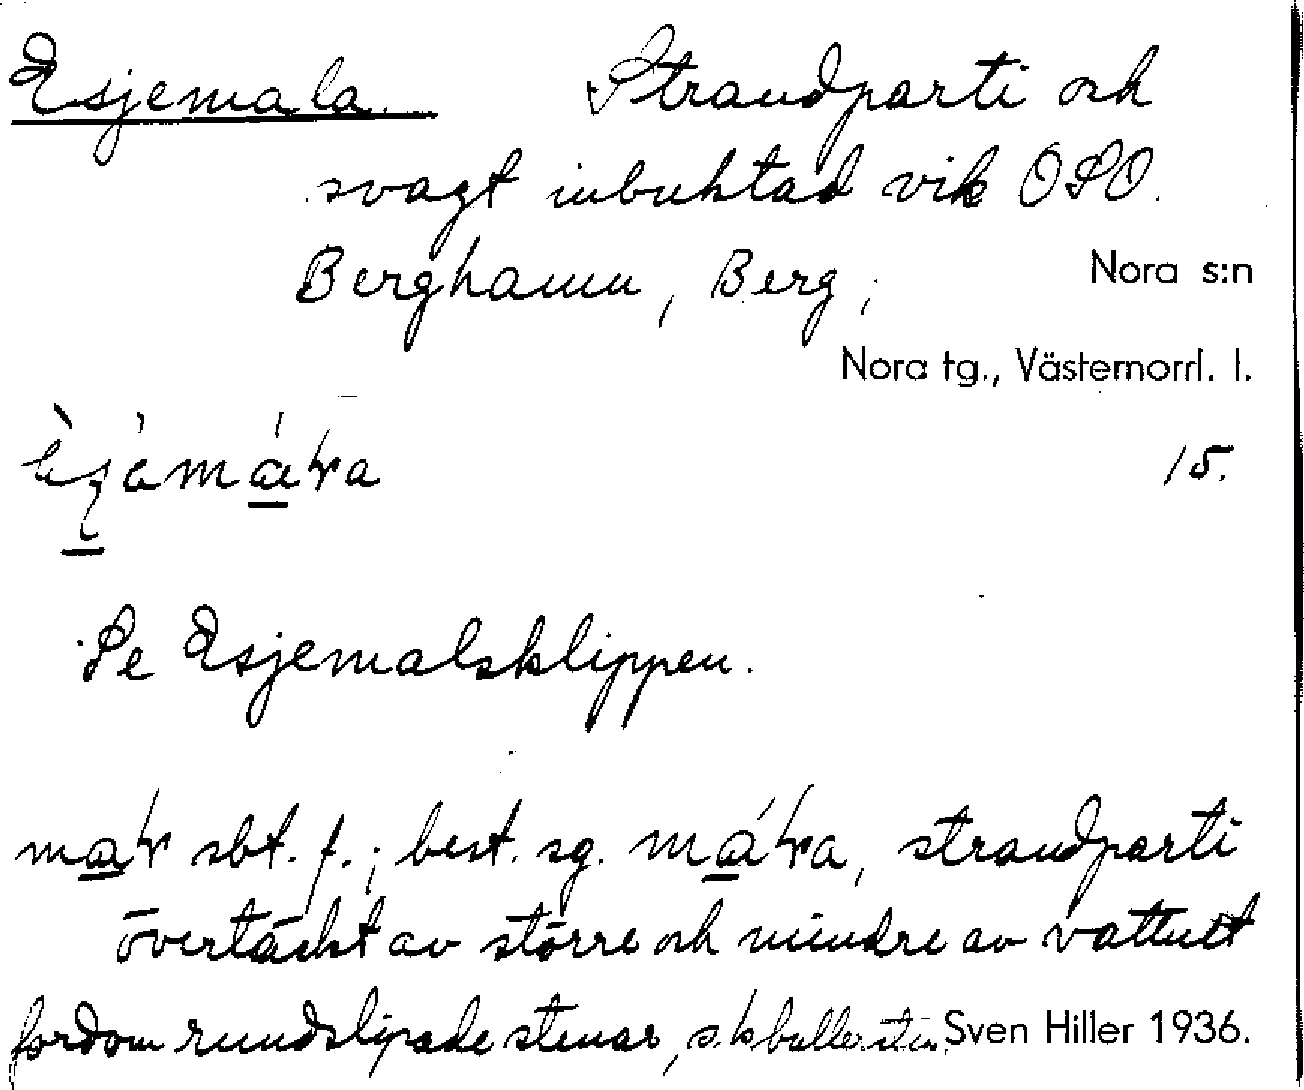 Esjemala. Strandparti och
svagt inbuktad vik OSO.
Berghamn, Berg, Nora s:n
Nora tg., Västernorrl. l.
15.
Se Esjemalsklippen.
sbt. f.; best. sg. strandparti
övertäckt av större och mindre av vattnet
fordom rundslipade stenar, s.k. Sven Hiller 1936.